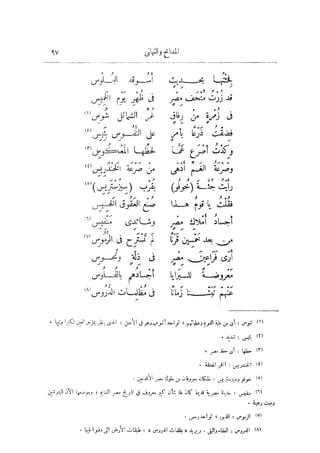 المدائح والتهانى ٩٧
فجئتها بحـديث أسـوقه للجـلوس
قد زرت متحف مصر فى ظهر يوم الخميس
فى زمرة من رفاق غر الشمائل شوس (١)
فضقت ذرعا بأمر على النفـوس بئيس (٢)
وكدت أصرع غما لحظها المعكوس (٣)
وصرعة الغـم أدهى من صرعة الخندريس (٤)
رأيت جثـة (خوفو) بقرب (سيزستريس) (٥)
فقلت يا قوم هـذا صنع العقوق الخسيس
أجساد أملاك مصر وشائدى منفيس (٦)
من بعد خمسين قرنا لم تسترح فى الرموس (٧)
أرى فراعين مصر فى ذلة ونحـوس
معروضـة للبرايا أجسادهم بالفـلوس
عنهم نبشـنا زمانا فى مظلمات الدروس (٨)
(١) شوس : أى من علية القوم وعظمائهم ، الواحد أشوس وهو فى الأصل : الذى ينظر بمؤخر العين تكبرا وتيها .
(٢) بئيس : شديد .
(٣) حظها : أى حظ مصر .
(٤) الخندريس : الخمر المعتقة .
(٥) خوفو وسيزستريس : ملكان معروفان من ملوك مصر الأقدمين .
(٦) منفيس : مدينة مصرية قديمة كان لها شأن كبير معروف فى تاريخ مصر القديم ؛ وموضعها الآن البدرشين وميت رهينة .
(٧) الرموس : القبور ، الواحد رمس .
(٨) الدروس : العفاء والبلى . ويريد «بمظلمات الدروس» : طبقات الأرض التى دفنوا فيها .